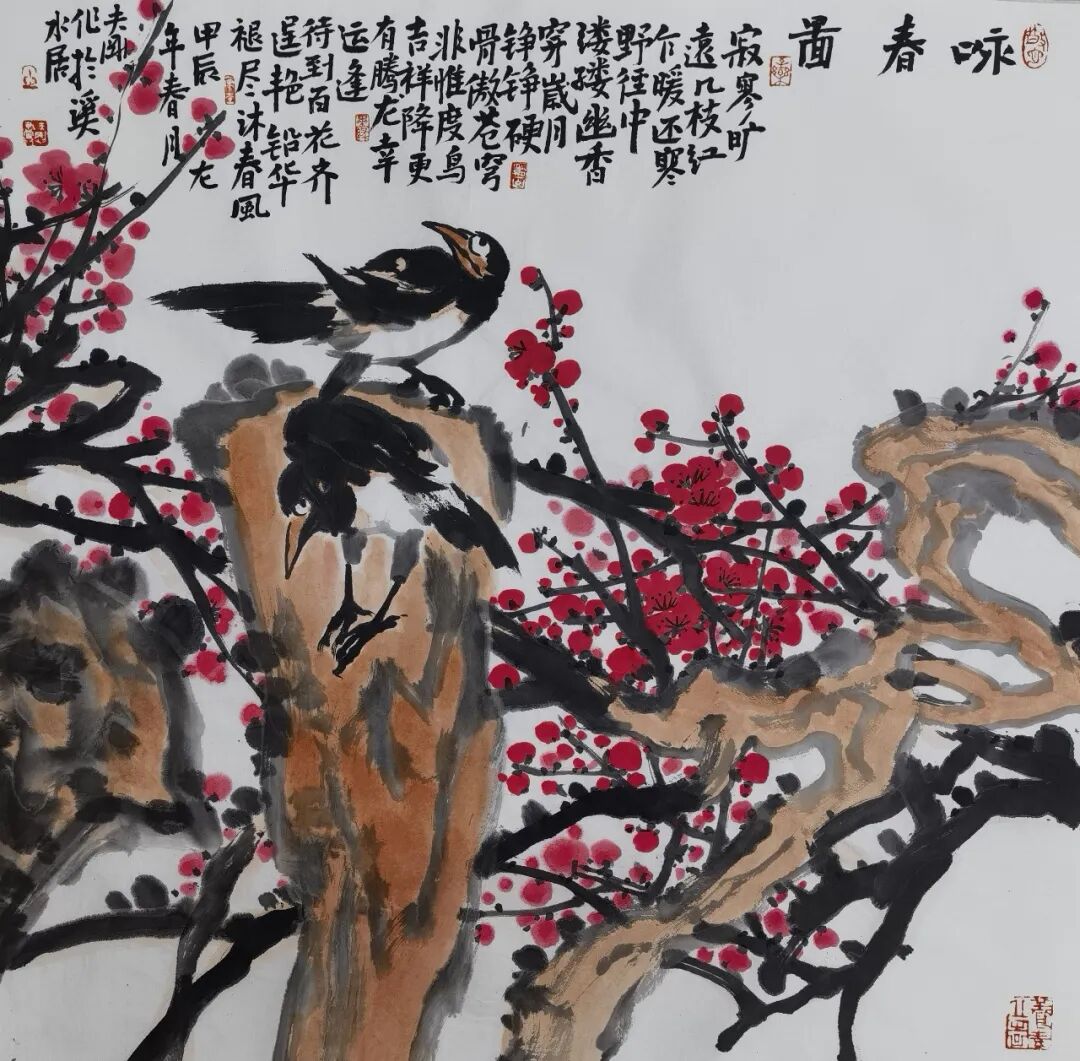 咏春啚
寂寥旷
遠几枝红
乍暖还寒
野径中
缕缕幽香
穿崴月
铮铮硬
骨傲苍穹
非惟度鸟
吉祥降更
有腾龙幸
运逢
待到百花齐
逞艳铅华
褪尽沐春風
甲辰龙
年春月
作於溪
水居